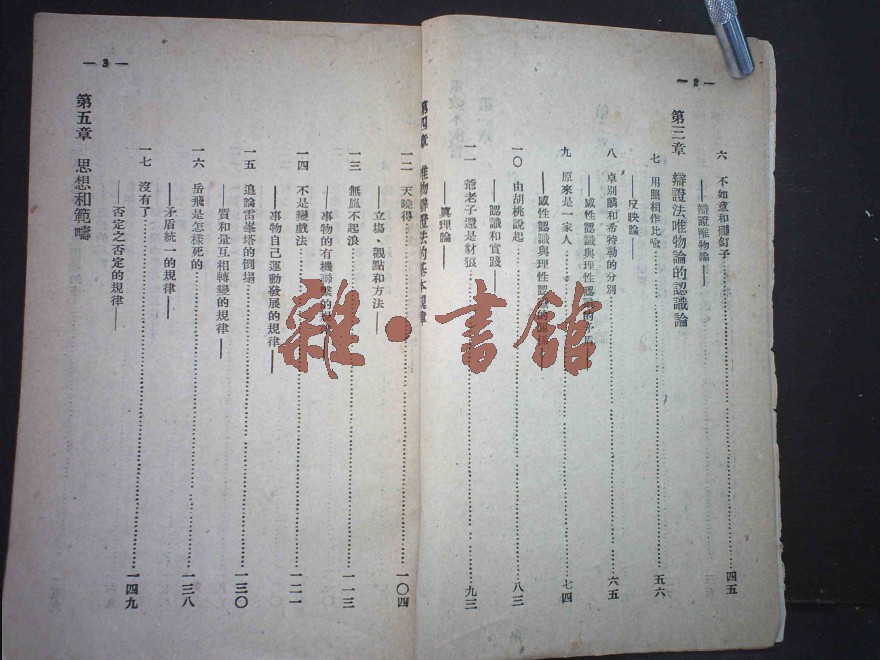 —2—
六 不如意和碰釘子……四五
——辯證唯物論——
第三章 辯證法唯物論的認識論
七 用照相作比喻……五六
——反映論——
八 卓別麟和希特勒的分別……六五
——感性認識與理性認識的矛盾——
九 原來是一家人……七四
——感性認識與理性認識的
一〇 由胡桃說起……八三
——認識和實踐——
一一 爺老子還是豺狼……九三
——真理論——
第四章 唯物辯證法的基本規律
一二 天曉得……一〇四
——立場、觀點和方法——
—3—
一三 無風不起浪……一一三
——事物的有機聯繫的
一四 不是變戲法……一二一
——事物自己運動發展的規律——
一五 追論雷峯塔的倒塌……一三〇
——質和量互相轉變的規律——
一六 岳飛是怎樣死的……一三八
——矛盾統一的規律——
一七 沒有了……一四九
——否定之否定的規律——
第五章 思想和範疇
雜·書館